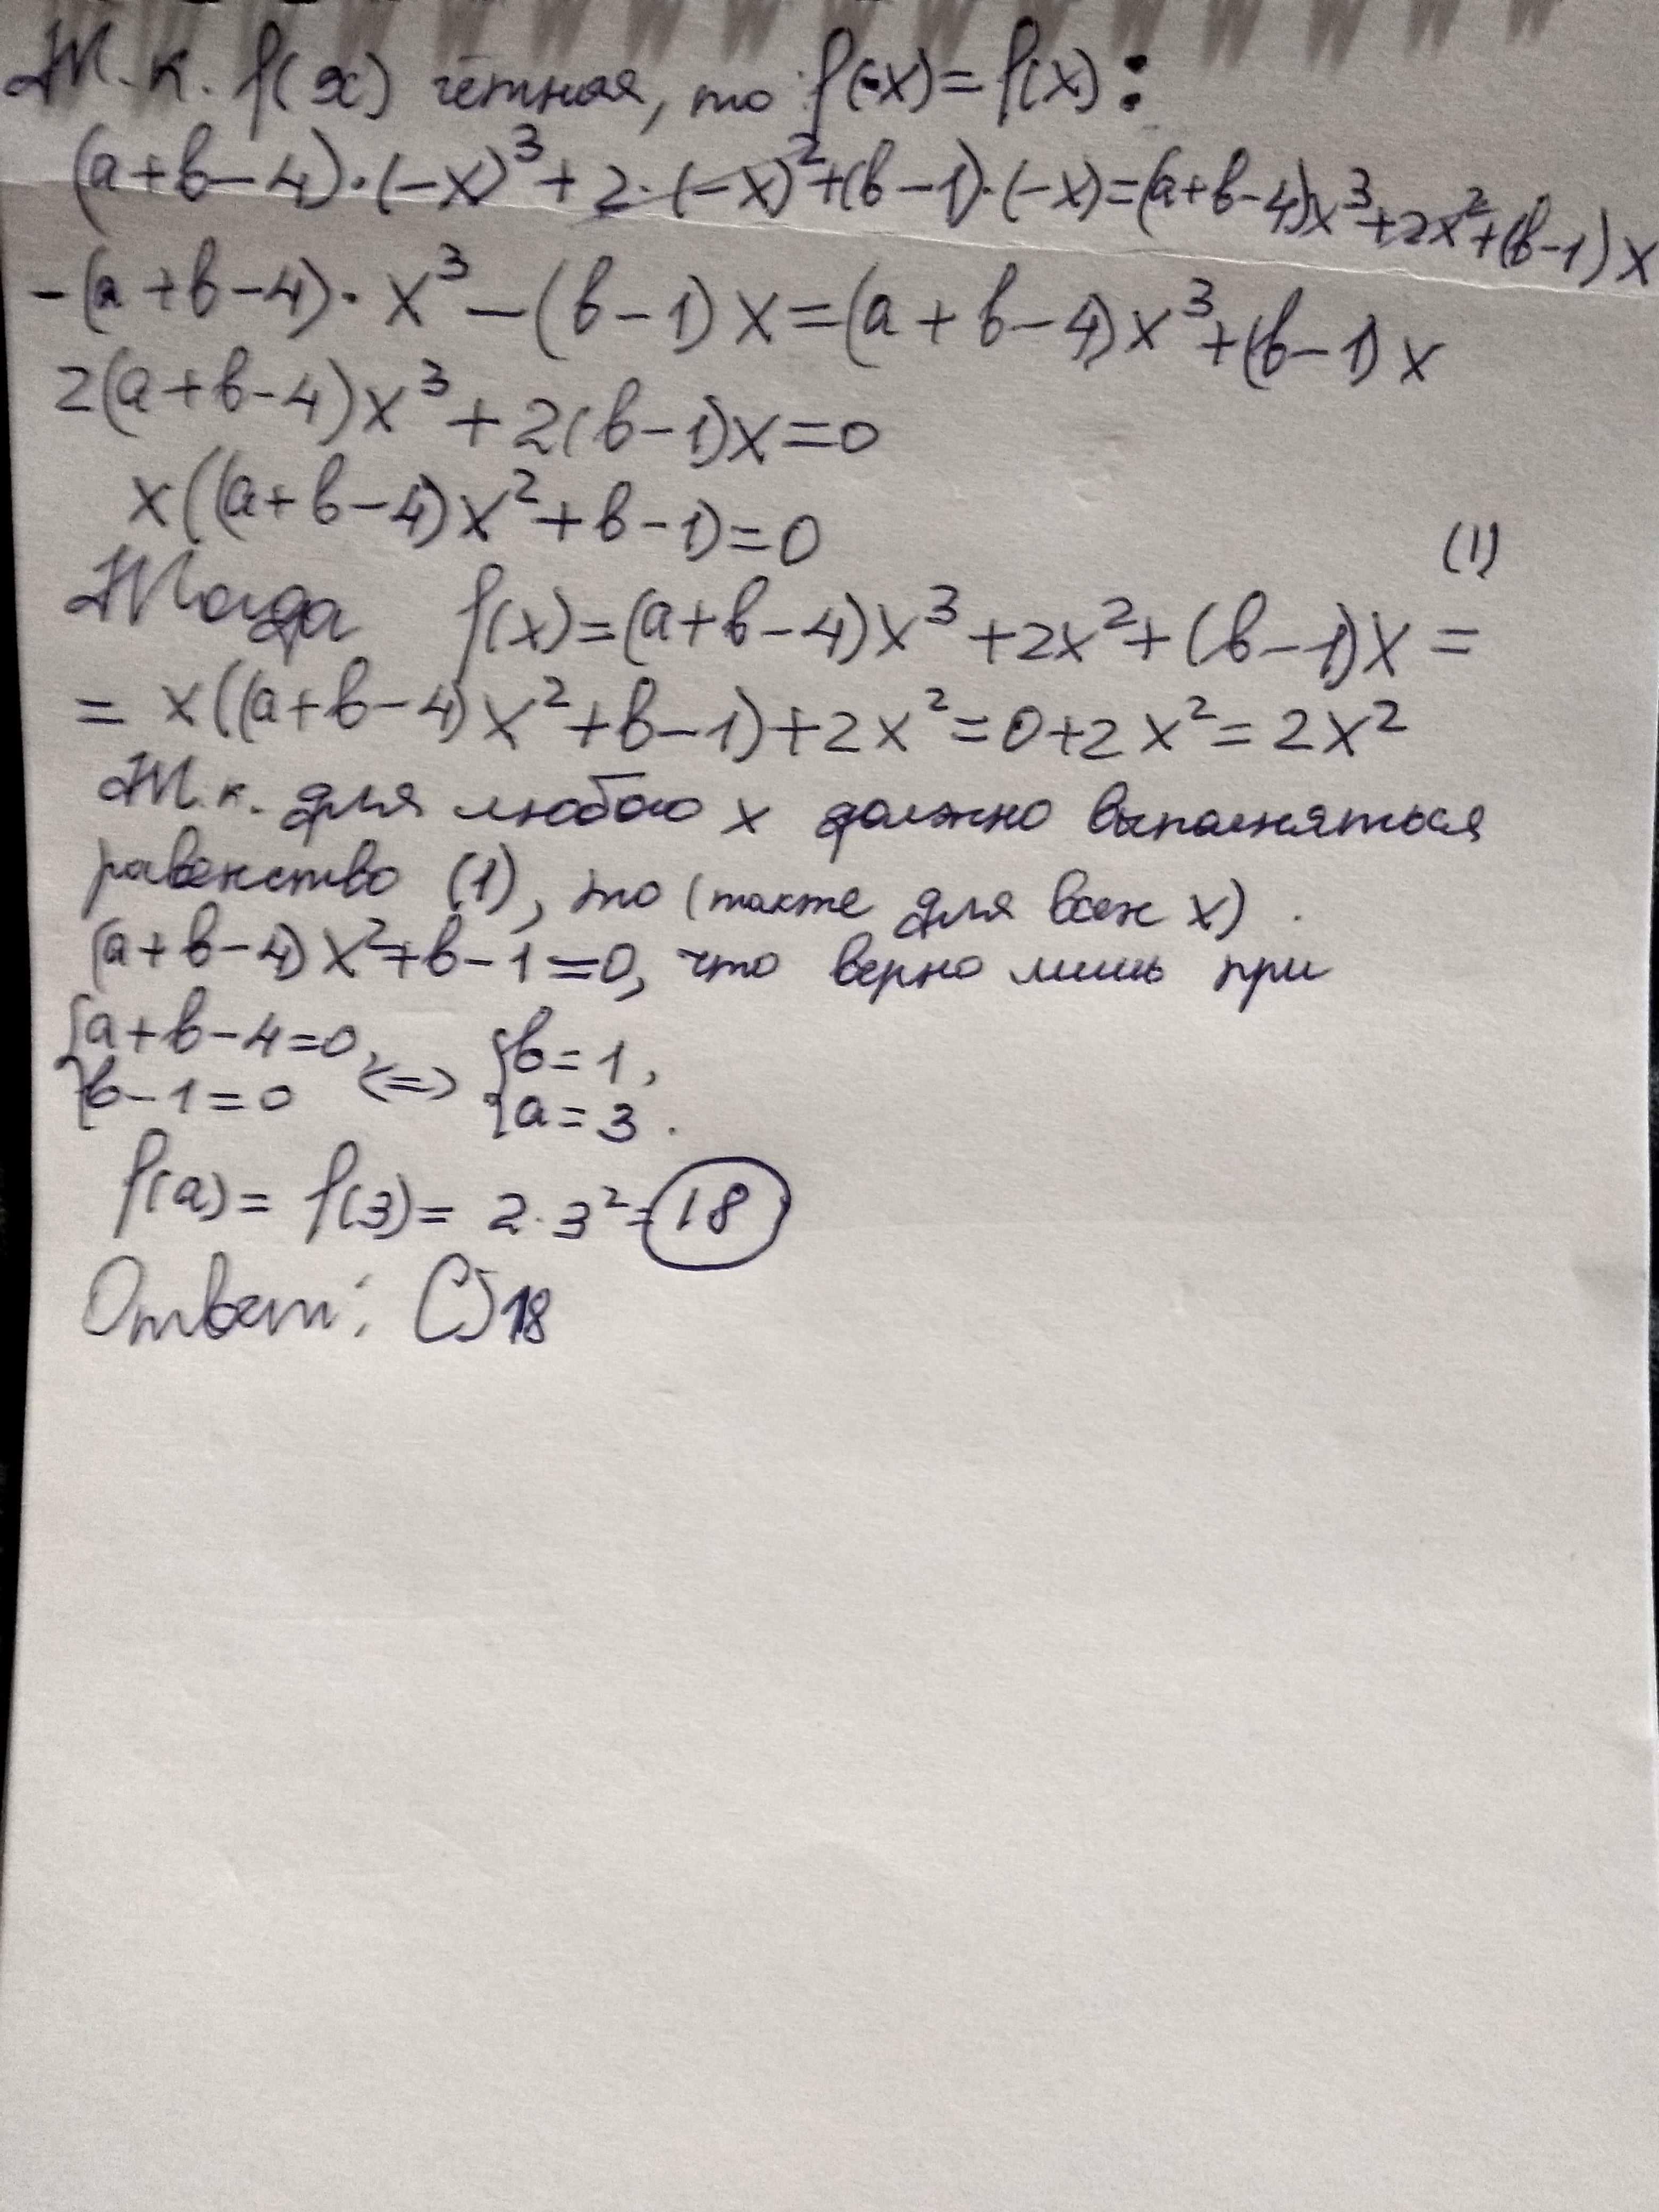 Т.к. f(x) чётная, то f(-x)=f(x):
(a+b-4)·(-x)³+2·(-x)²+(b-1)·(-x)=(a+b-4)x³+2x²+(b-1)x
-(a+b-4)·x³-(b-1)x=(a+b-4)x³+(b-1)x
2(a+b-4)x³+2(b-1)x=0
x((a+b-4)x²+b-1)=0 (1)
Тогда f(x)=(a+b-4)x³+2x²+(b-1)x=
= x((a+b-4)x²+b-1)+2x²=0+2x²=2x²
Т.к. для любого x должно выполняться
равенство (1), то (также для всех x)
(a+b-4)x²+b-1=0, что верно лишь при
{a+b-4=0, <=> {b=1,
{b-1=0 {a=3.
f(a)=f(3)=2·3²=18
Ответ: C)18